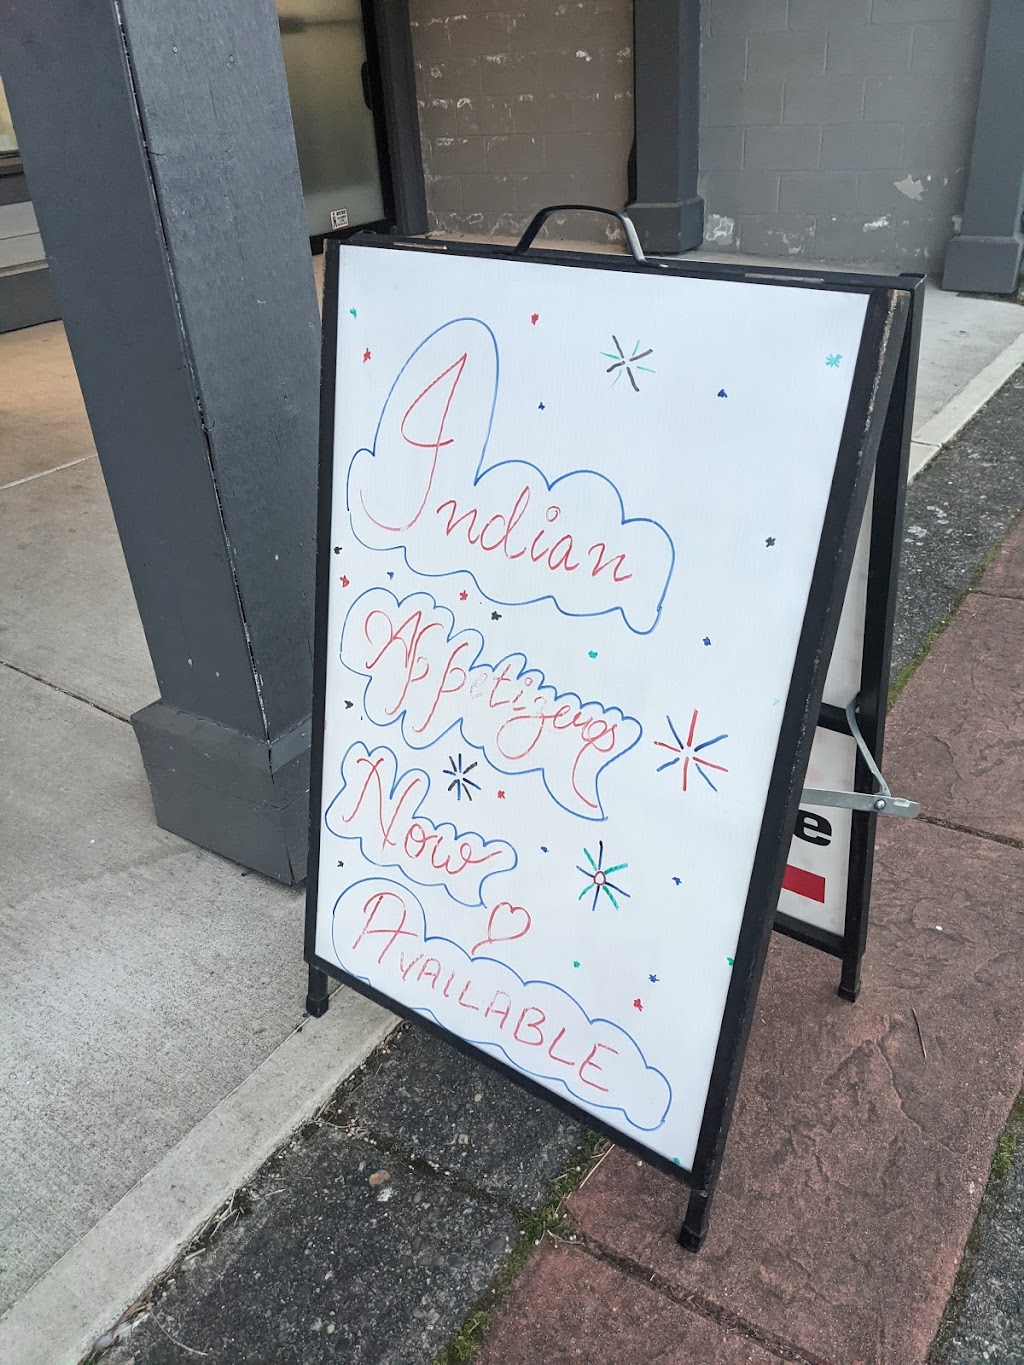 Indian
Appetizers
Now
AVAILABLE
e